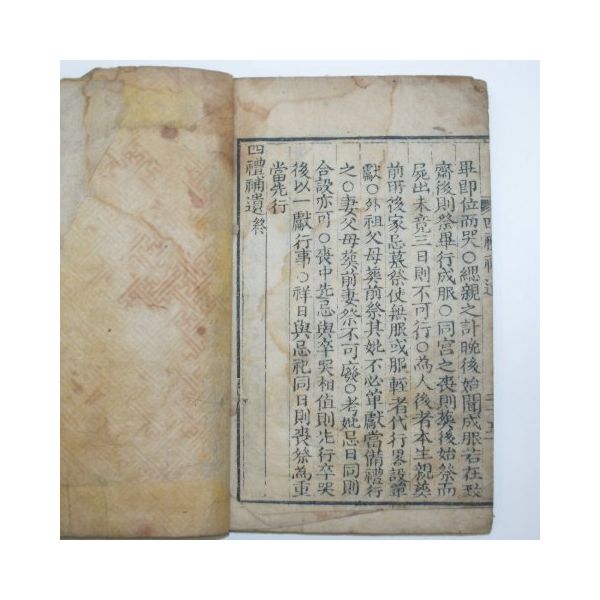 畢即位而哭○緦親之訃晩後始聞成服若在致
齋後則祭畢行成服○同宮之喪則葬後始祭而
屍出未竟三日則不可行○為人後者本生親葬
前所後家忌墓祭使無服或服輕者代行畧設單
獻○外祖父母葬前祭其妣不必單獻當備禮行
之○妻父母葬前妻祭不可廢○考妣忌日同則
合設亦可○喪中先忌與卒哭相值則先行卒哭
後以一獻行事○祥日與忌祀同日則喪祭為重
當先行
四禮補遺終
四禮補遺